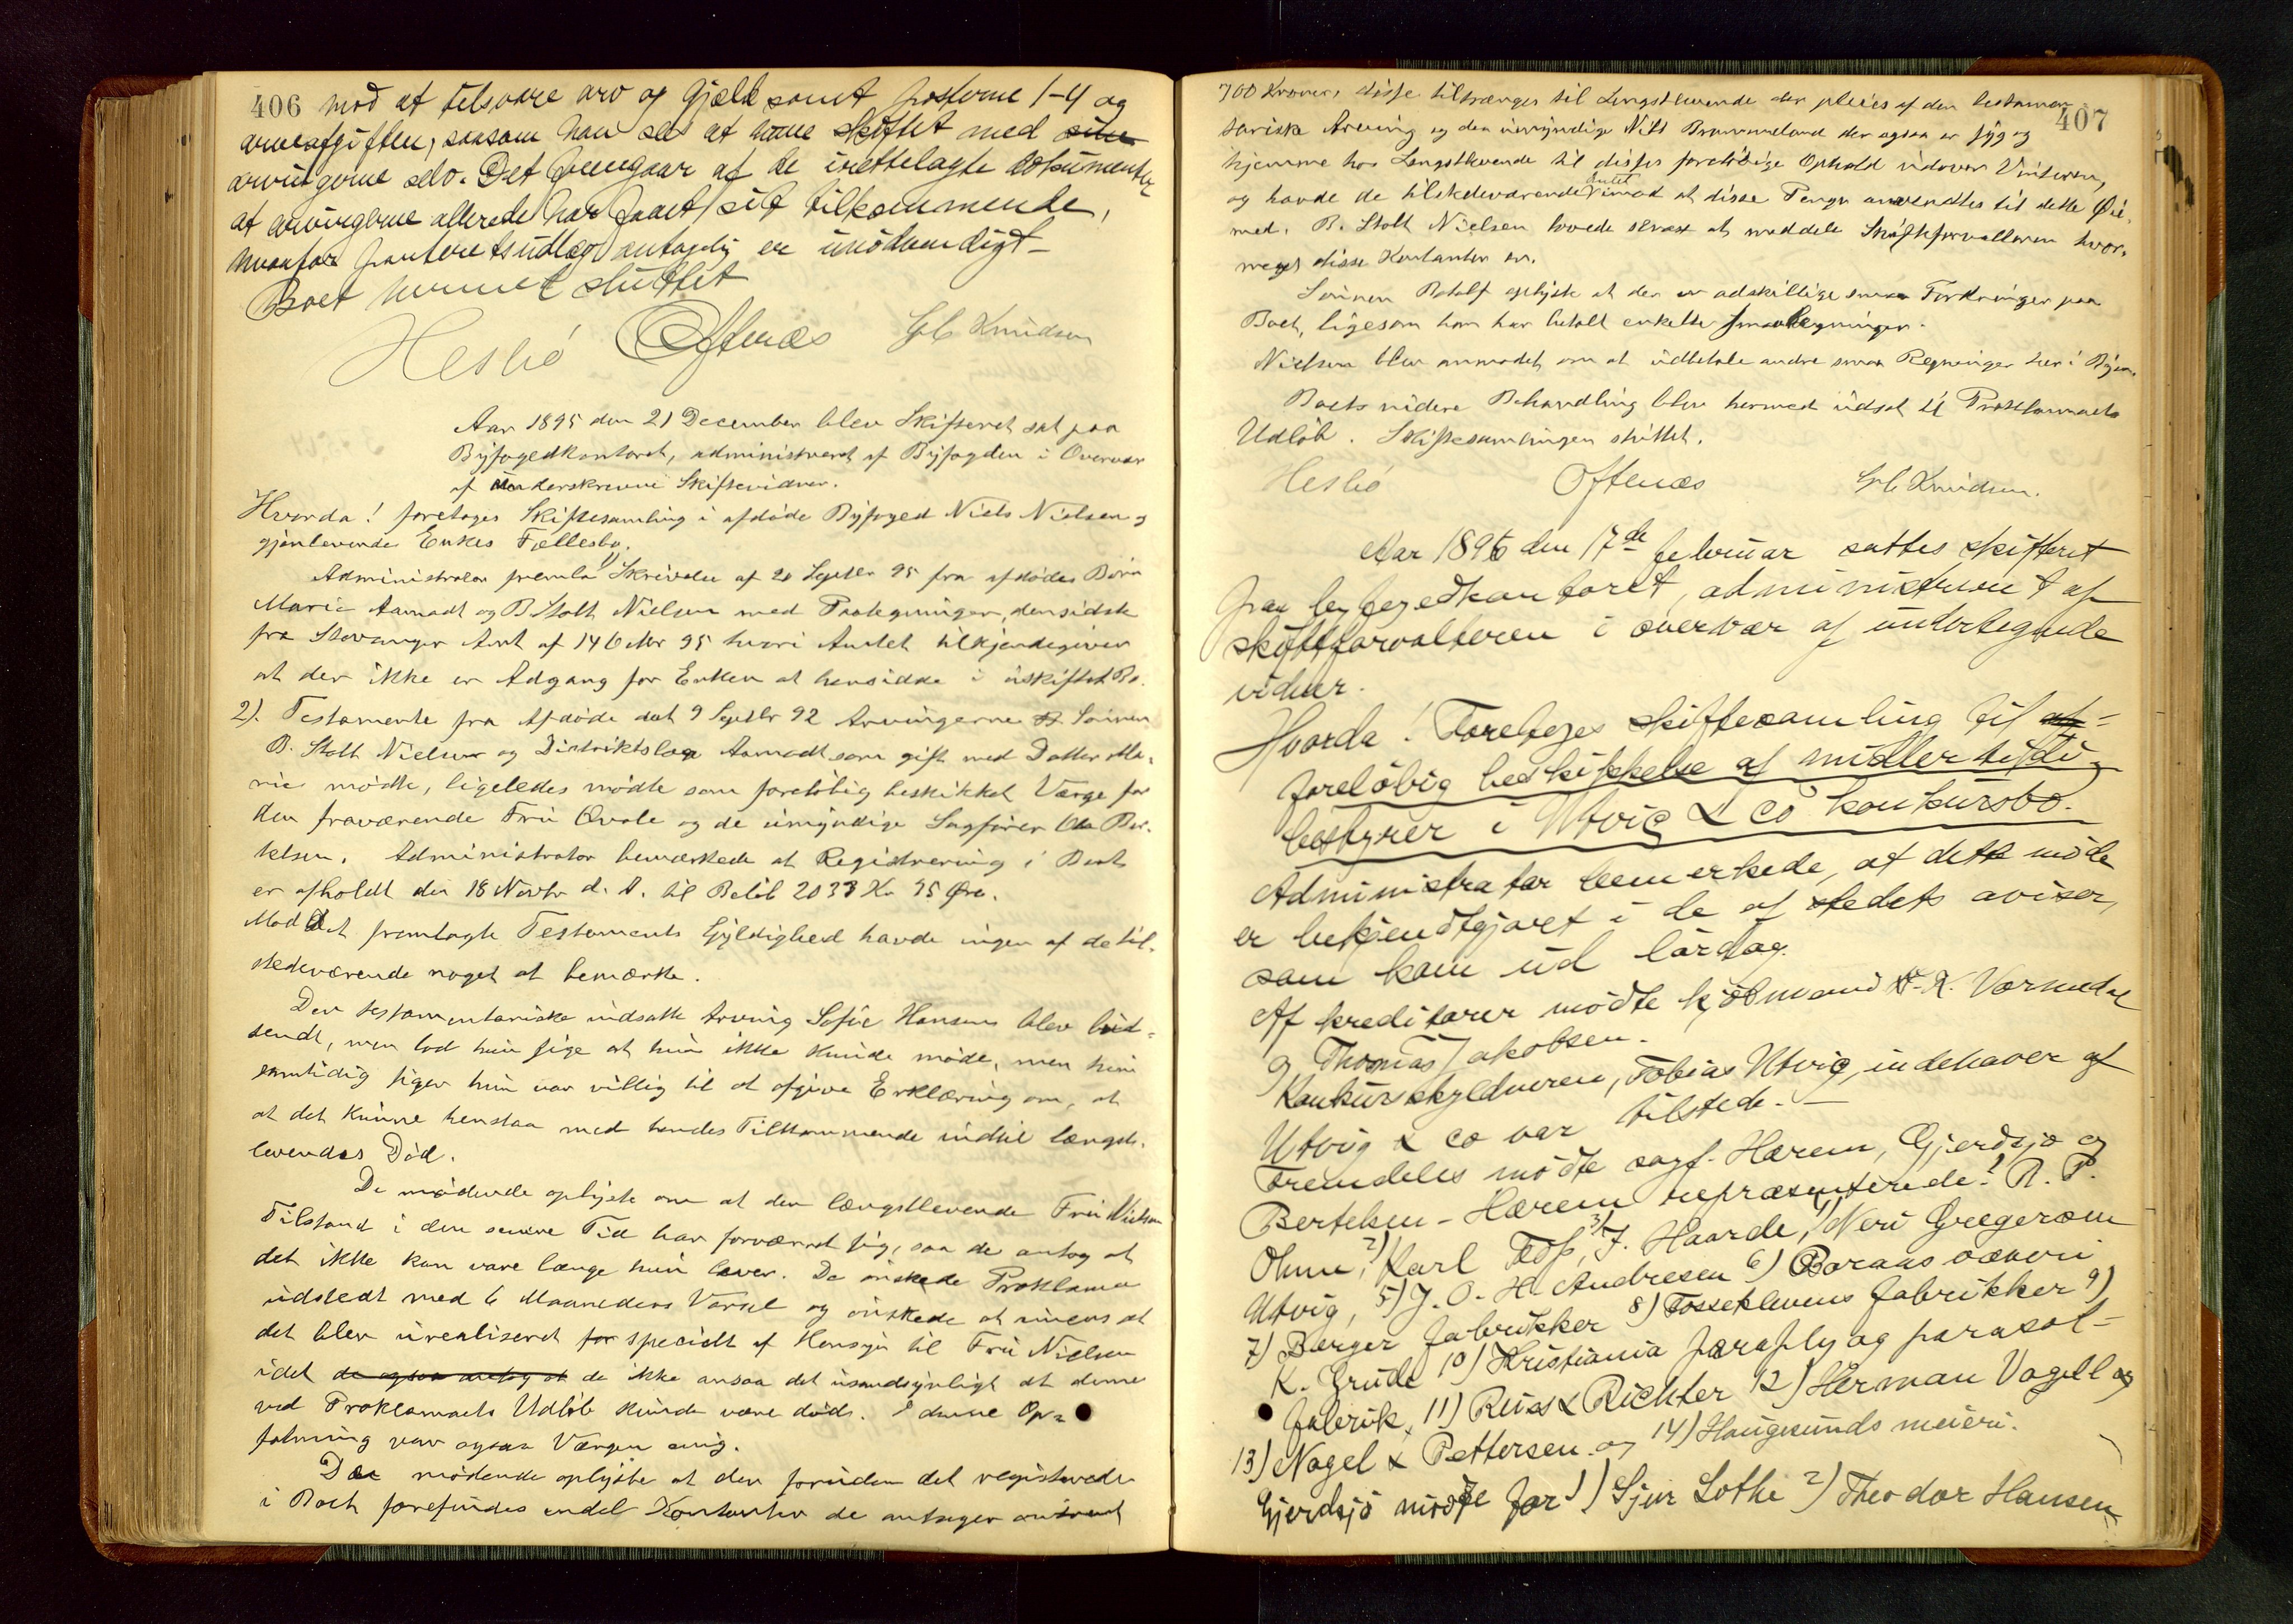 406 mod at tilsvare arv og Gjæld samt posterne 1-4 og
arveafgiften, saasom han sees at have skiftet med sine
arvingerne selv. Det fremgaar af de irettelagte dokumenter
at arvingerne allerede har faaet sit tilkommende,
hvorfor panteretsudlæg antagelig er unödvendigt -
Boet hermed sluttet
Hesbö Oftenæs Knudsen
Aar 1895 den 21 December blev Skifteret sat paa
Byfogedkontoret, administreret af Byfogden i Overvær
af underskrevne Skiftevidner.
Hvorda! foretoges Skiftesamling i afdöde Byfoged Niels Nielsen og
gjenlevende Enkes Fællesbo.
Administrator fremla 1) Skrivelse af 20 Septbr 95 fra afdödes Börn
Marie Aamodt og B Stolt Nielsen med Paategninger, den sidste
fra Stavanger Amt af 14 Oktbr 95 hvori Amtet tilkjendegiver
at der ikke er Adgang for Enken at hensidde i uskiftet Bo.
2). Testamente fra Afdöde dat 9 Septbr 92 Arvingerne Sönnen
B. Stolt Nielsen og Distriktslæge Aamodt som gift med Datter Ma-
rie mödte, ligeledes mödte som forelöbig beskikket Værge for
den fraværende Fru Qvale og de umyndige Sagförer Ber-
telsen. Administrator bemærkede at Registrering i Boet
er afholdt den 18 Novbr d. A. til Belöb 2037 Kr 95 Öre.
Mod det fremlagte Testaments Gyldighed havde ingen af de til-
stedeværende noget at bemærke.
Den testamentariske indsatte Arving Sofie Hansen blev bud-
sendt, men lod hun sige at hun ikke kunde möde, men hun
samtidig siger hun var villig til at afgive Erklæring om, at
at det kunne henstaa med hendes Tilkommende indtil længst-
levendes Död.
De mödende oplyste om at den længstlevende Fru Nielsen
Tilstand i den senere Tid har forværret sig, saa de antog at
det ikke kan vare længe hun lever. De önskede Proklama
udstedt med 6 Maaneders Varsel og önskede at
det blev urealiseret for specielt af Hensyn til Fru Nielsen
idet de ogsaa antog at de ikke ansaa det usandsynligt at denne
ved Proklamaets Udlöb kunde være död. I denne Op-
fatning var ogsaa Værgen enig.
De mödende oplyste at der foruden det registrerede
i Boet forefindes endel Kontanter de antager omtrent
407
700 Kroner, disse tiltrænges til Længstlevende der pleies af den testamen-
tariske Arving og den umyndige Nils Brummeland der ogsaa er syg og
hjemme hos Længstlevende til disses forelöbige Ophold udover Vinteren,
og havde de tilstedeværende intet imod at disse Penge anvendtes til dette Öie-
med. B. Stolt Nielsen lovede senest at meddele Skifteforvalteren hvor-
meget disse Kontanter er.
Sönnen oplyste at der er adskillige smaa Fordringer paa
Boet, ligesom han har betalt enkelte smaa Regninger.
Nielsen blev anmodet om at udbetale andre smaa Regninger her i Byen.
Boets videre Behandling blev hermed udsat til Proklamaets
Udlöb. Skiftesamlingen sluttet.
Hesbö Oftenæs Knudsen.
Aar 1896 den 17de februar sattes skifteret
paa byfogedkontoret, administreret af
skifteforvalteren i overvær af undertegnede
vidner.
Hvorda! Foretoges skiftesamling til
forelöbig beskikkelse af midlertidi-
bestyrer i Utvig & Co konkursbo.
Administrator bemerkede, at dette möde
er bekjendtgjoret i de af stedets aviser,
som kom ud lördag.
Af kreditorer mödte kjöbmand K. Vormedal
og Thomas Jakobsen.
Konkursskyldneren, Tobias Utvig, indehaver af
Utvig & Co var tilstede. -
Fremdeles mödte sagf. Hærem, Gjerdsjö og
Bertelsen - Hærem repræsenterede: 1) R. P.
Ohme, 2) Karl 3) J. Haarde, 4) Neri Gregersen
Utvig, 5) J. O. H. Andresen 6) Boraas væveri
7) Berger Fabrikker 8) Fosseklevens fabrikker 9)
K. Grude 10) Kristiania paraply og parasol-
fabrik, 11) Reiss & Richter 12) Herman Vogell og
13) Nagel & Pettersen og 14) Haugesunds meieri.
Gjerdsjö mödte for 1) Sjur Lothe 2) Theodor Hansen